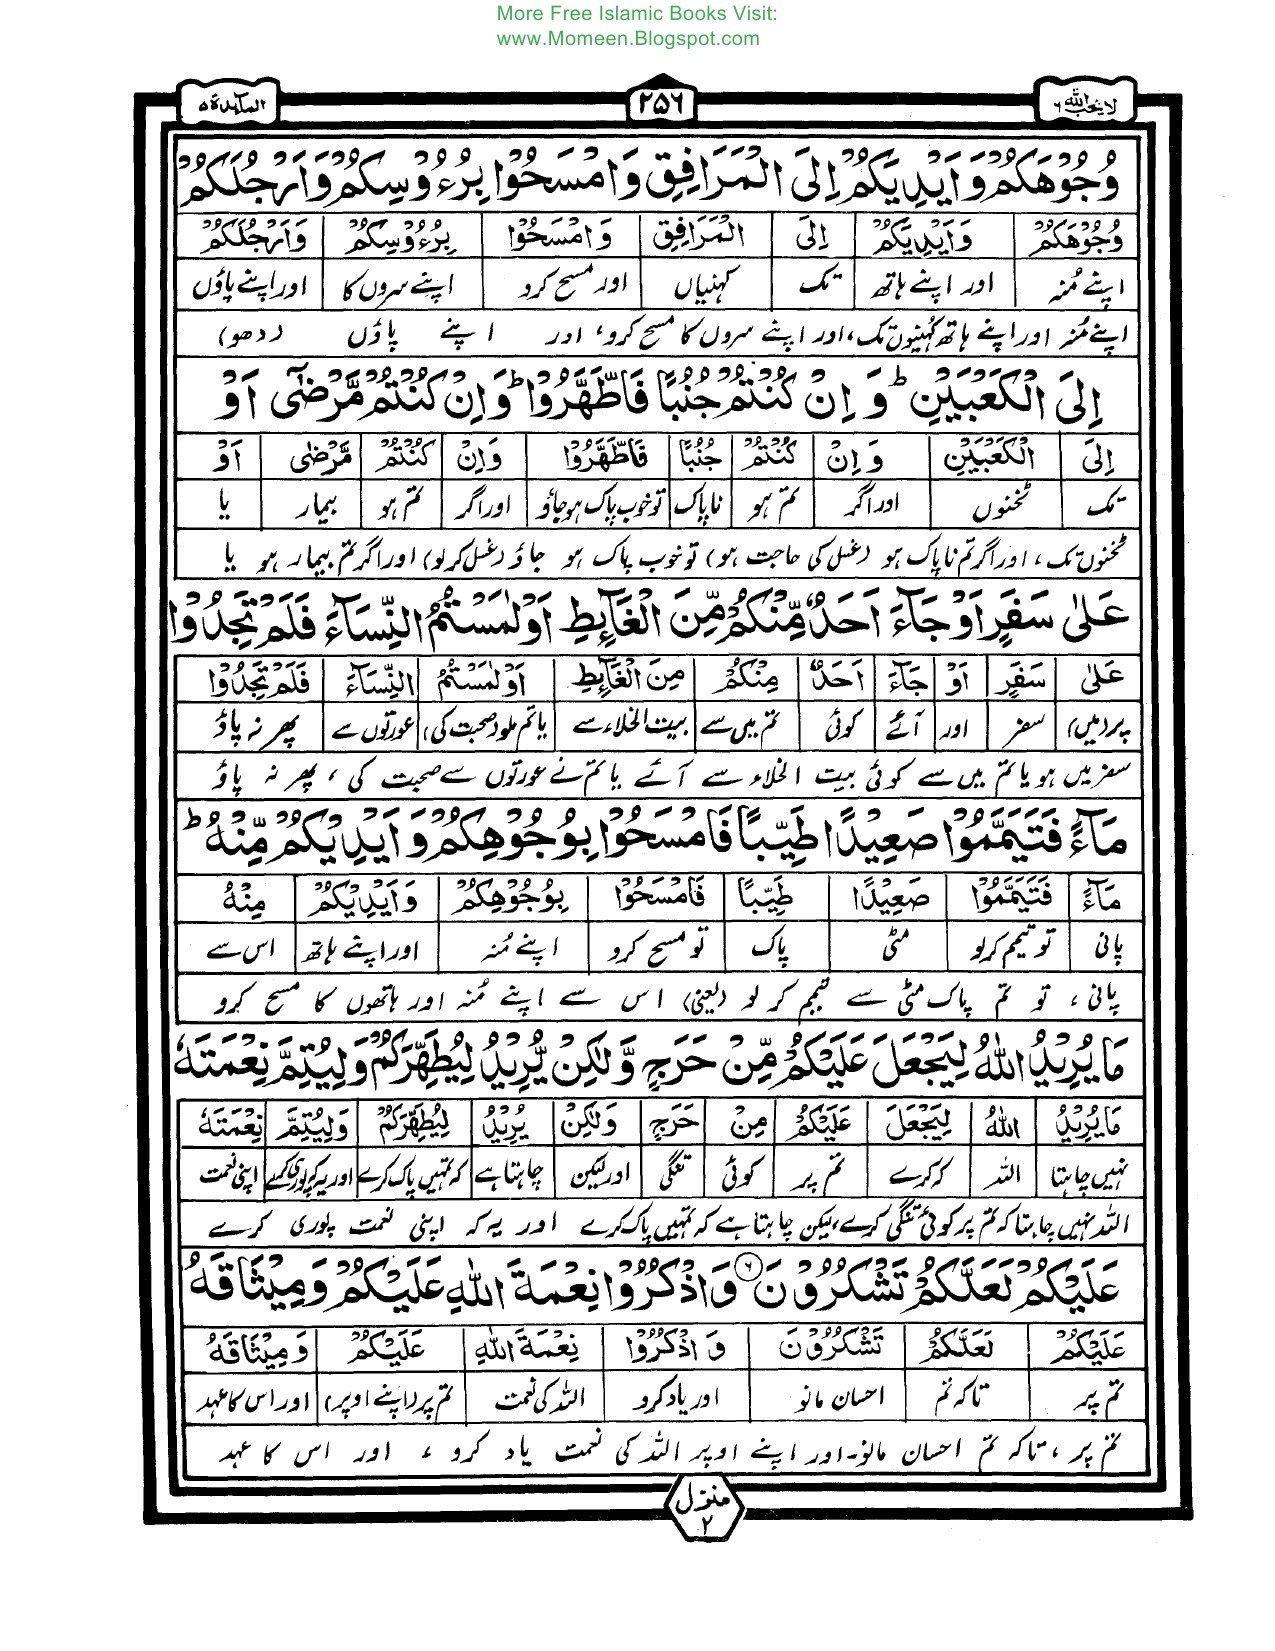 More Free Islamic Books Visit:
www.Momeen.Blogspot.com
لا یحب الله ۶ ۲۵۶ المآىِٕدة ۵
وُجُوْهَكُمْ وَاَیْدِیَكُمْ اِلَی الْمَرَافِقِ وَامْسَحُوْا بِرُءُوْسِكُمْ وَاَرْجُلَكُمْ
وُجُوْهَكُمْ وَاَیْدِیَكُمْ اِلَی الْمَرَافِقِ وَامْسَحُوْا بِرُءُوْسِكُمْ وَاَرْجُلَكُمْ
اپنے مُنہ اور اپنے ہاتھ تک کہنیاں اور مسح کرو اپنے سروں کا اور اپنے پاؤں
اپنے مُنہ اور اپنے ہاتھ کہُنیوں تک، اور اپنے سروں کا مسح کرو، اور اپنے پاؤں (دھو)
اِلَی الْكَعْبَیْنِ ؕ وَاِنْ كُنْتُمْ جُنُبًا فَاطَّهَّرُوْا ؕ وَاِنْ كُنْتُمْ مَّرْضٰۤی اَوْ
اِلَی الْكَعْبَیْنِ وَاِنْ كُنْتُمْ جُنُبًا فَاطَّهَّرُوْا وَاِنْ كُنْتُمْ مَّرْضٰۤی اَوْ
تک ٹخنوں اور اگر تم ہو ناپاک تو خوب پاک ہو جاؤ اور اگر تم ہو بیمار یا
ٹخنوں تک، اور اگر تم ناپاک ہو (غسل کی حاجت ہو) تو خوب پاک ہو جاؤ (غسل کر لو) اور اگر تم بیمار ہو یا
عَلٰی سَفَرٍ اَوْ جَآءَ اَحَدٌ مِّنْكُمْ مِّنَ الْغَآىِٕطِ اَوْ لٰمَسْتُمُ النِّسَآءَ فَلَمْ تَجِدُوْا
عَلٰی سَفَرٍ اَوْ جَآءَ اَحَدٌ مِنْكُمْ مِنَ الْغَآىِٕطِ اَوْ لٰمَسْتُمُ النِّسَآءَ فَلَمْ تَجِدُوْا
پر (میں) سفر اور آئے کوئی تم میں سے بیت الخلاء سے یا تم ملو (صحبت کی) عورتوں سے پھر نہ پاؤ
سفر میں ہو یا تم میں سے کوئی بیت الخلاء سے آئے یا تم نے عورتوں سے صحبت کی، پھر نہ پاؤ
مَآءً فَتَیَمَّمُوْا صَعِیْدًا طَیِّبًا فَامْسَحُوْا بِوُجُوْهِكُمْ وَاَیْدِیْكُمْ مِّنْهُ ؕ
مَآءً فَتَیَمَّمُوْا صَعِیْدًا طَیِّبًا فَامْسَحُوْا بِوُجُوْهِكُمْ وَاَیْدِیْكُمْ مِنْهُ
پانی تو تیمم کر لو مٹی پاک تو مسح کرو اپنے مُنہ اور اپنے ہاتھ اس سے
پانی، تو تم پاک مٹی سے تیمم کر لو (یعنی) اس سے اپنے مُنہ اور ہاتھوں کا مسح کرو
مَا یُرِیْدُ اللهُ لِیَجْعَلَ عَلَیْكُمْ مِّنْ حَرَجٍ وَّلٰكِنْ یُّرِیْدُ لِیُطَهِّرَكُمْ وَلِیُتِمَّ نِعْمَتَهٗ
مَا یُرِیْدُ اللهُ لِیَجْعَلَ عَلَیْكُمْ مِنْ حَرَجٍ وَلٰكِنْ یُرِیْدُ لِیُطَهِّرَكُمْ وَلِیُتِمَّ نِعْمَتَهٗ
نہیں چاہتا اللہ کہ کرے تم پر کوئی تنگی اور لیکن چاہتا ہے کہ تمہیں پاک کرے اور یہ کہ پوری کرے اپنی نعمت
اللہ نہیں چاہتا کہ تم پر کوئی تنگی کرے، لیکن چاہتا ہے کہ تمہیں پاک کرے اور یہ کہ اپنی نعمت پوری کرے
عَلَیْكُمْ لَعَلَّكُمْ تَشْكُرُوْنَ ۶ وَاذْكُرُوْا نِعْمَةَ اللهِ عَلَیْكُمْ وَمِیْثَاقَهُ
عَلَیْكُمْ لَعَلَّكُمْ تَشْكُرُوْنَ وَاذْكُرُوْا نِعْمَةَ اللهِ عَلَیْكُمْ وَمِیْثَاقَهُ
تم پر تاکہ تم احسان مانو اور یاد کرو اللہ کی نعمت تم پر (اپنے اوپر) اور اس کا عہد
تم پر، تاکہ تم احسان مانو۔ اور اپنے اوپر اللہ کی نعمت یاد کرو، اور اس کا عہد
منزل ۲